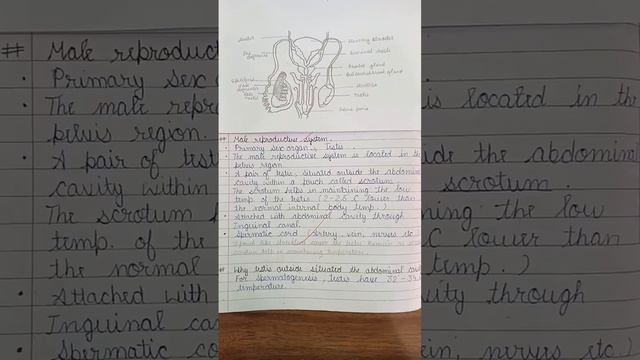 Ureter
Urinary bladder
Vas
deferens
Seminal vesicle
Prostate gland
Bulbourethral gland
Epididymis
Vasa
efferentia
Urethra
Testis
# Male reproductive system.
• Primary sex organ - Testis.
• The male reproductive system is located in the
pelvis region.
• A pair of testis situated outside the abdominal
cavity within a pouch called scrotum.
The scrotum helps in maintaining the low
temp. of the testis (2-2.5 C lower than
the normal internal body temp.)
• Attached with abdominal cavity through
Inguinal canal.
• Spermatic cord (Artery, vein, nerves etc.)
# Why testis outside situated the abdominal
For spermatogenesis, testis have 32°-34
temperature.
# Male reproduct
• Primary sex
• The male repr
pelvis region.
• A pair of test
cavity within
The scrotum
temp. of the
the normal
• Attached with
Inguinal ca
• Spermatic co
is located in the
ide the abdomina
scrotum.
ning the low
C lower than
temp.)
vity through
ein, nerves etc.)